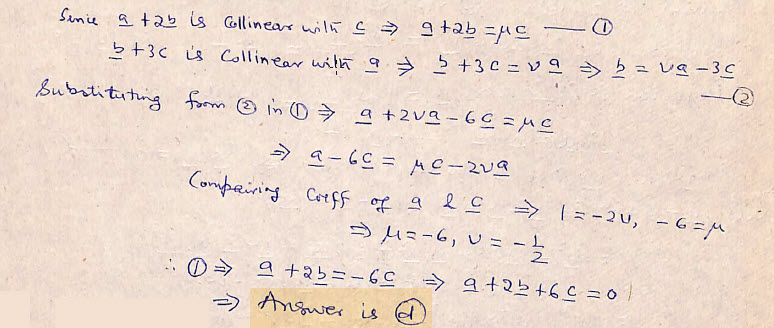 Since a̲ + 2b̲ is Collinear with c̲ ⇒ a̲ + 2b̲ = μc̲ — ①
b̲ + 3c is Collinear with a̲ ⇒ b̲ + 3c = νa̲ ⇒ b̲ = νa̲ - 3c̲ — ②
Substituting from ② in ① ⇒ a̲ + 2νa̲ - 6c̲ = μc̲
⇒ a̲ - 6c̲ = μc̲ - 2νa̲
Compairing Coeff of a̲ & c̲ ⇒ 1 = -2ν, -6 = μ
⇒ μ = -6, ν = -1/2
∴ ① ⇒ a̲ + 2b̲ = -6c̲ ⇒ a̲ + 2b̲ + 6c̲ = 0
⇒ Answer is ⓓ